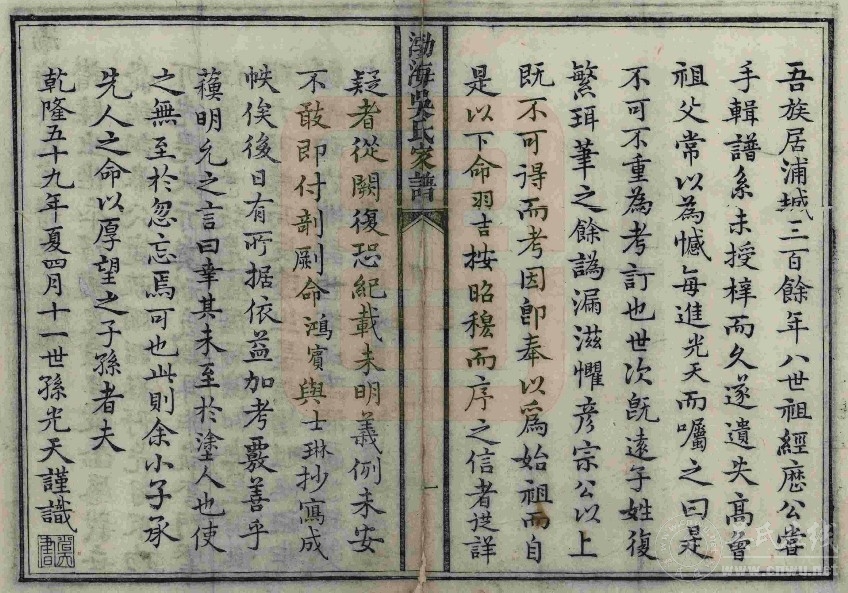 吾族居浦城三百餘年八世祖經歷公嘗
手輯譜系未授梓而久遂遺失高曾
祖父常以為憾每進光天而囑之曰是
不可不重為考訂也世次既遠子姓復
繁珥筆之餘譌漏滋懼彦宗公以上
既不可得而考因卽奉以爲始祖而自
是以下命羽吉按昭穆而序之信者從詳
渤海吳氏家譜
一
疑者從闕復恐紀載未明義例未安
不敢即付剞劂命鴻賓與士琳抄寫成
帙俟後日有所据依益加考覈善乎
蘓明允之言曰幸其未至於塗人也使
之無至於忽忘焉可也此則余小子承
先人之命以厚望之子孫者夫
乾隆五十九年夏四月十一世孫光天謹識
www.cnwu.net